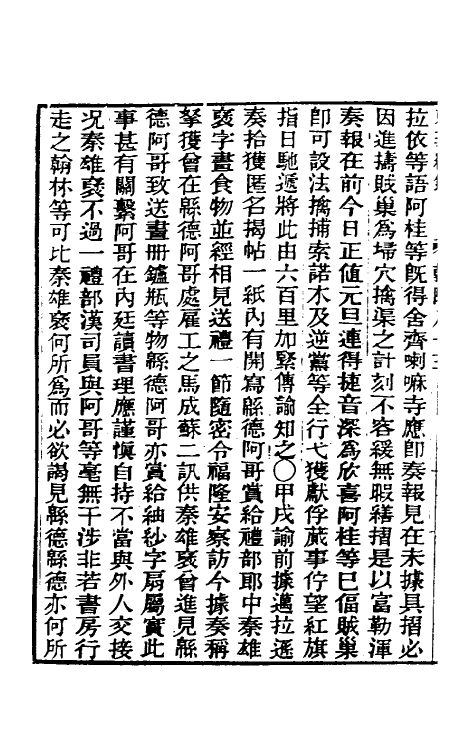 拉依等語阿桂等旣得舍齊喇嘛寺應卽奏報見在未據具摺必
因進擣賊巢爲埽穴擒渠之計刻不容緩無暇繕摺是以富勒渾
奏報在前今日正值元旦連得捷音深爲欣喜阿桂等已偪賊巢
卽可設法擒捕索諾木及逆黨等全行弋獲獻俘蕆事佇望紅旗
指日馳遞將此由六百里加緊傳諭知之○甲戌諭前據邁拉遜
奏拾獲匿名揭帖一紙內有開寫緜德阿哥賞給禮部郎中秦雄
襃字畫食物並經相見送禮一節隨密令福隆安察訪今據奏稱
拏獲曾在緜德阿哥處雇工之馬成蘇二訊供秦雄襃曾進見緜
德阿哥致送畫冊鑪瓶等物緜德阿哥亦賞給紬紗字扇屬實此
事甚有關繫阿哥在內廷讀書理應謹愼自持不當與外人交接
况秦雄襃不過一禮部漢司員與阿哥等毫無干涉非若書房行
走之翰林等可比秦雄襃何所爲而必欲謁見緜德緜德亦何所